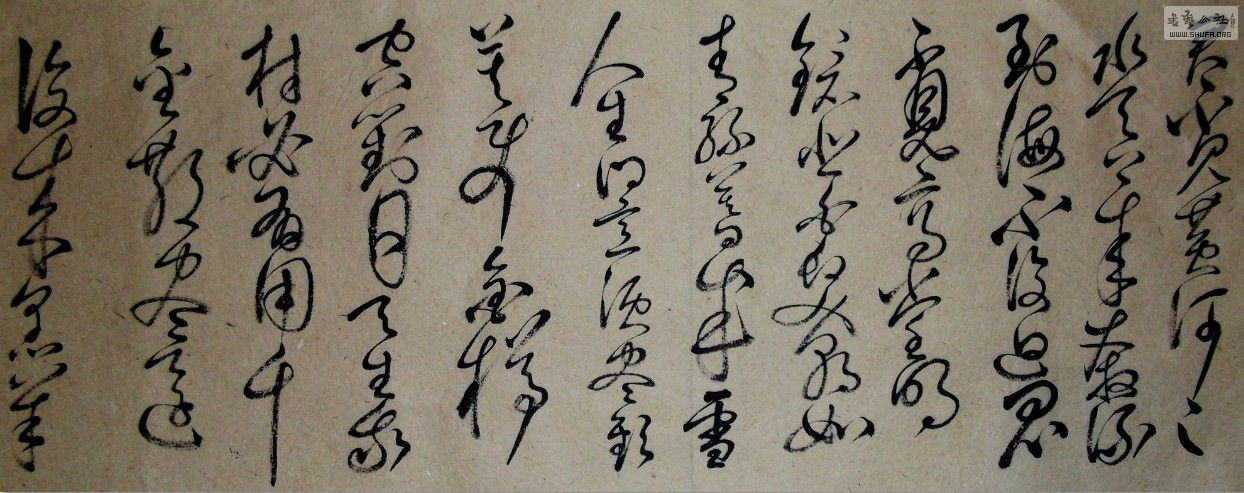 君不見黄河之
水天上来奔流
到海不復迴君
不見高堂明
鏡悲白髮朝如
青絲暮成雪
人生得意須尽歡
莫使金樽
空對月天生我
材必有用千
金散尽還
復来烹羊
书艺公社
WWW.SHUFA.ORG